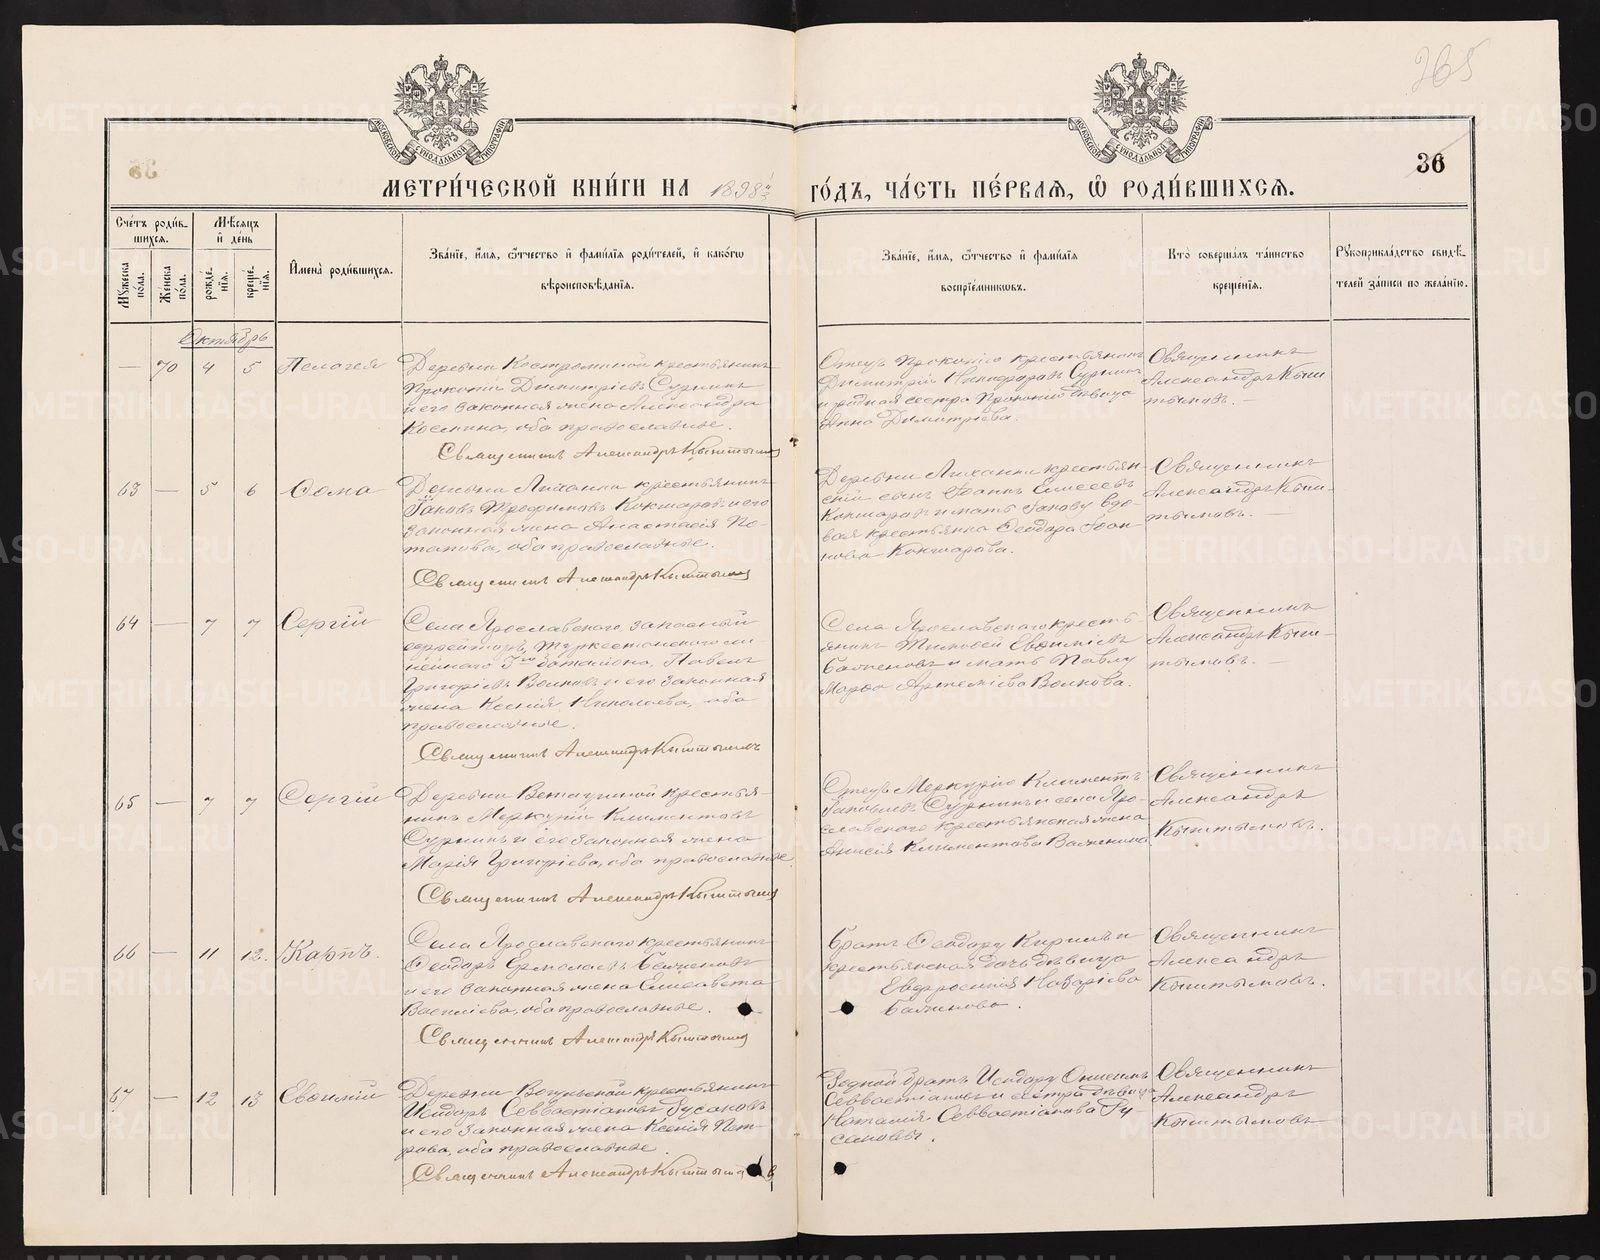 265
36
МЕТРИ́ЧЕСКОЙ КНИ́ГИ НА 1898 ГО́ДЪ, ЧА́СТЬ ПЕ́РВАЯ, Ѡ҆ РОДИ́ВШИХСЯ.
Сче́тъ роди́в-
шихся.
Мѣ́сяцъ
и҆ де́нь
Мꙋ́жеска
по́ла.
Же́нска
по́ла.
рожде́-
нїя.
креще́-
нїя.
И҆мена̀ роди́вшихся.
Зва́нїе, и҆́мя, ѻ҆́тчество и҆ фами́лїя роди́телей, и҆ како́гѡ
вѣроисповѣ́данїя.
Зва́нїе, и҆́мя, ѻ҆́тчество и҆ фами́лїя
воспрїе́мникѡвъ.
Кто̀ соверша́лъ та́инство
креще́нїя.
Рꙋкоприкла́дство свидѣ́-
телей за́писи по жела́нїю.
Октябрь
— 70 4 5 Пелагея
Деревни Костроминой крестьянинъ
Прокопій Димитріевъ Суринъ
и его законная жена Александра
Косьмина, оба православные.
Священникъ Александръ Кыштымовъ
Отецъ Прокопію крестьянинъ
Димитрій Никифоровъ Суринъ
и родная сестра Прокопію дѣвица
Анна Димитріева.
Священникъ
Александръ Кыш-
тымовъ.
63 — 5 6 Ѳома
Деревни крестьянинъ
Іаковъ Трофимовъ и его
законная жена Анастасія По-
тапова, оба православные.
Священникъ Александръ Кыштымовъ
Деревни крестьян-
скій сынъ Іоаннъ Елисеевъ
и мать Іакову вдо-
вая крестьянка Ѳеодора Іоан-
нова
Священникъ
Александръ Кыш-
тымовъ.
64 — 7 7 Сергій
Села Ярославского, запасный
ефрейторъ, Туркестанского ли-
нейного баталіона, Павелъ
Григоріевъ Волковъ и его законная
жена Ксенія Николаева, оба
православные.
Священникъ Александръ Кыштымовъ
Села Ярославского кресть-
янинъ Тимоѳей Евѳиміевъ
и мать Павлу
Марѳа Артеміева Волкова.
Священникъ
Александръ Кыш-
тымовъ.
65 — 7 7 Сергій
Деревни крестья-
нинъ Меркурій Климентовъ
Суринъ и его законная жена
Марія Григоріева, оба православные.
Священникъ Александръ Кыштымовъ
Отецъ Меркурію Климентъ
Іаковлевъ Суринъ и села Яро-
славского крестьянская жена
Анисія Климентова
Священникъ
Александръ
Кыштымовъ.
66 — 11 12. Карпъ.
Села Ярославского крестьянинъ
Ѳеодоръ Ермолаевъ
и его законная жена Елисавета
Василіева, оба православные.
Священникъ Александръ Кыштымовъ
Братъ Ѳеодору Кириллъ и
крестьянская дочь дѣвица
Евфросинія Назаріева
Священникъ
Александръ
Кыштымовъ.
67 — 12 13 Евѳимій
Деревни крестьянинъ
Исидоръ Севвастіановъ Русановъ
и его законная жена Ксенія Пет-
рова, оба православные.
Священникъ Александръ Кыштымовъ
Родной братъ Исидору Онисимъ
Севвастіановъ и сестра дѣвица
Наталія Севвастіанова Ру-
сановы.
Священникъ
Александръ
Кыштымовъ